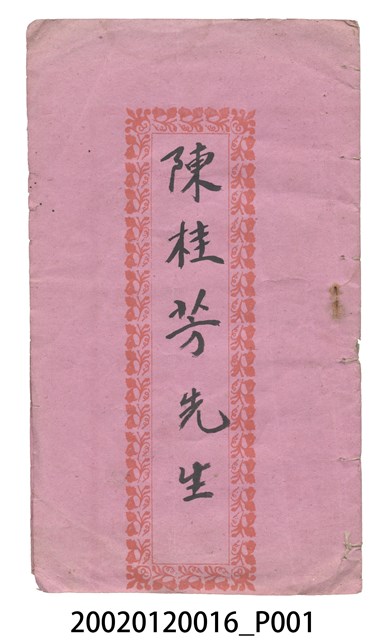 陳桂芳先生
20020120016_P001